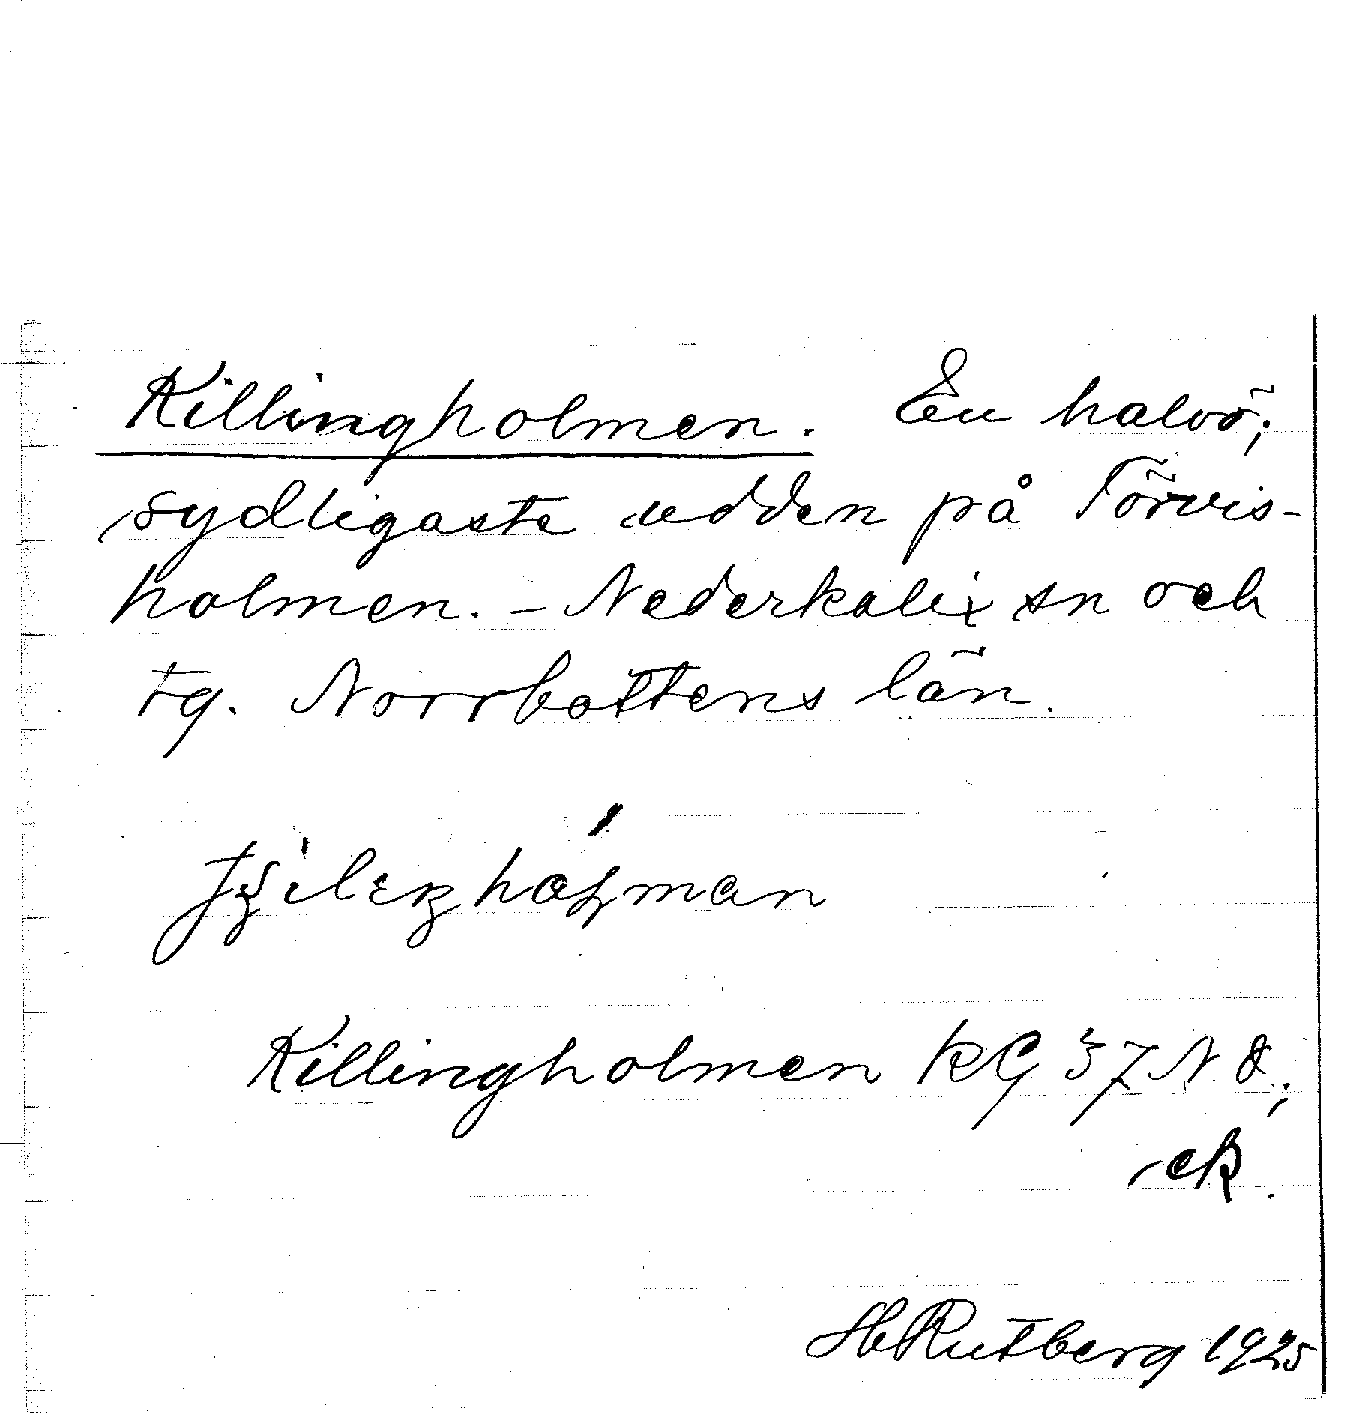 Killingholmen. En halvö;
sydligaste udden på Törvis-
holmen. - Nederkalix sn och
tg. Norrbottens län.
Killingholmen KG 37 N O;
ek.
H Rutberg 1925